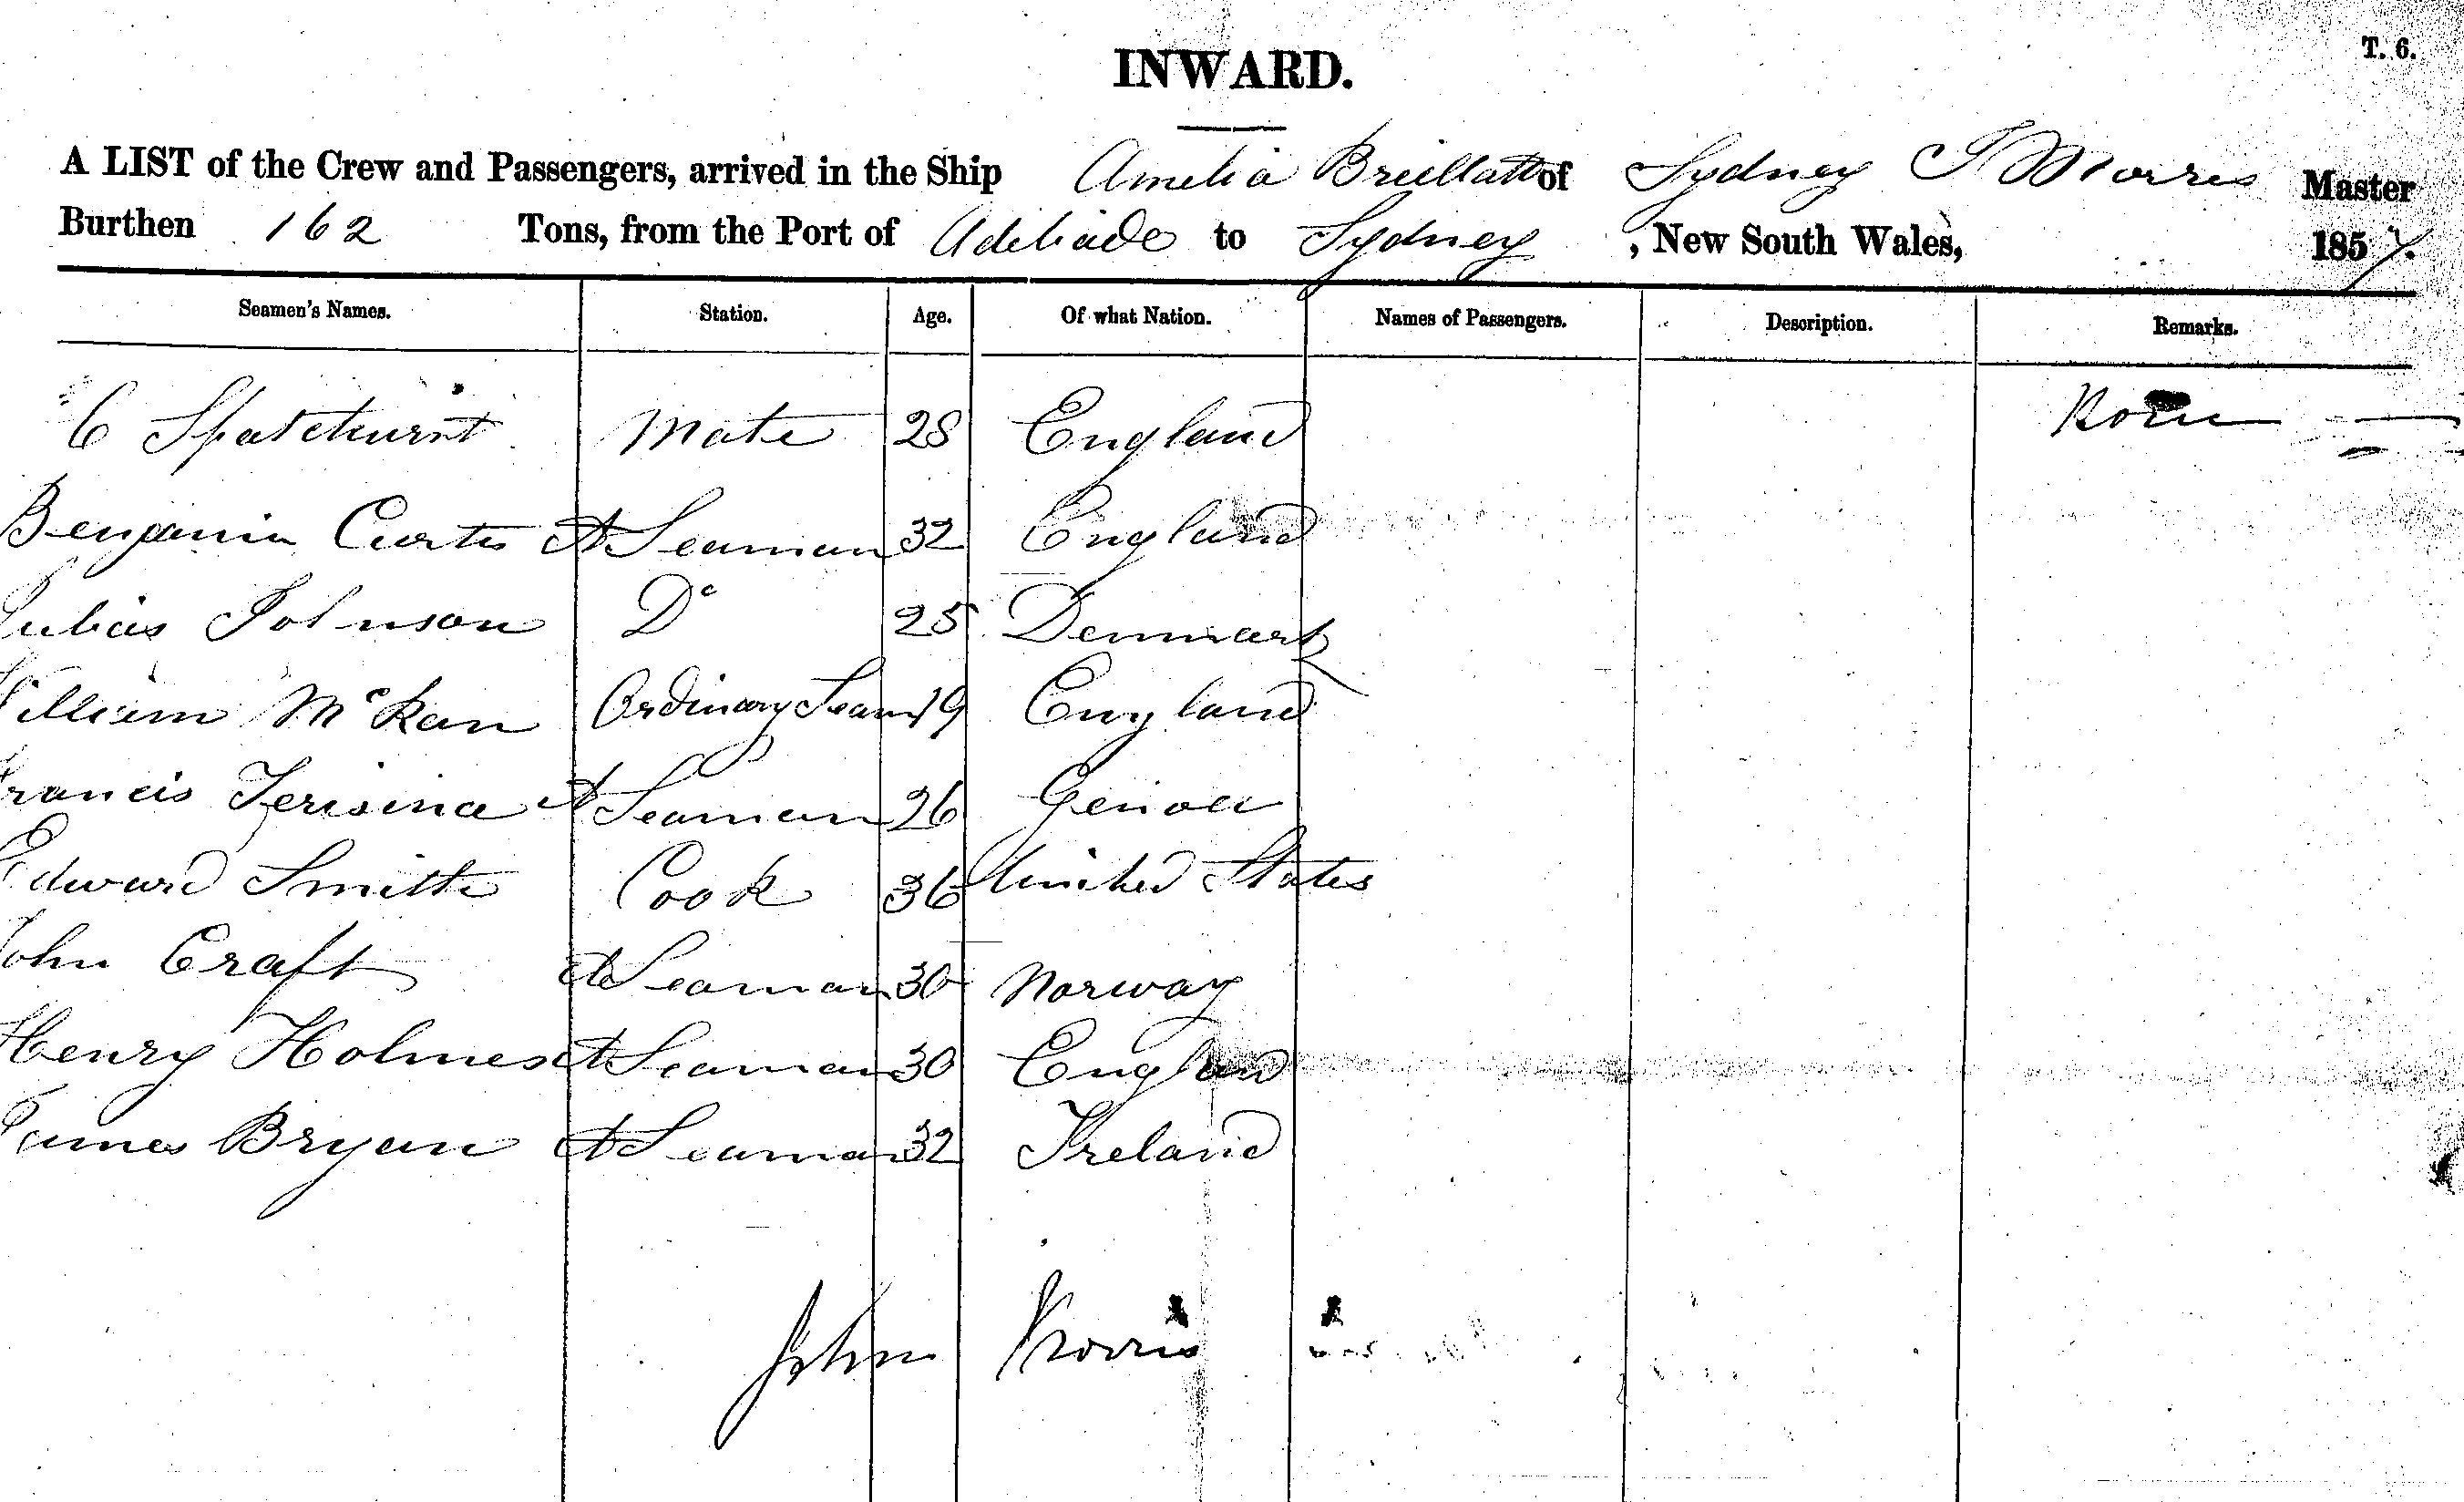 T. 6.
INWARD.
A LIST of the Crew and Passengers, arrived in the Ship Amelia Breillatt of Sydney J Morris Master
Burthen 162 Tons, from the Port of Adeliade to Sydney, New South Wales, 1857.
Seamen's Names. Station. Age. Of what Nation. Names of Passengers. Description. Remarks.
C Spatchurst Mate 28 England
Benjamin Curtis A Seaman 32 England
Julias Johnson Do 25 Denmark
William McKan Ordinary Seam 19 England
Francis Terisina A Seaman 26 Genoa
Edward Smith Cook 36 United States
John Craft A Seaman 30 Norway
Henry Holmes A Seaman 30 England
James Bryan A Seaman 32 Ireland
John Morris